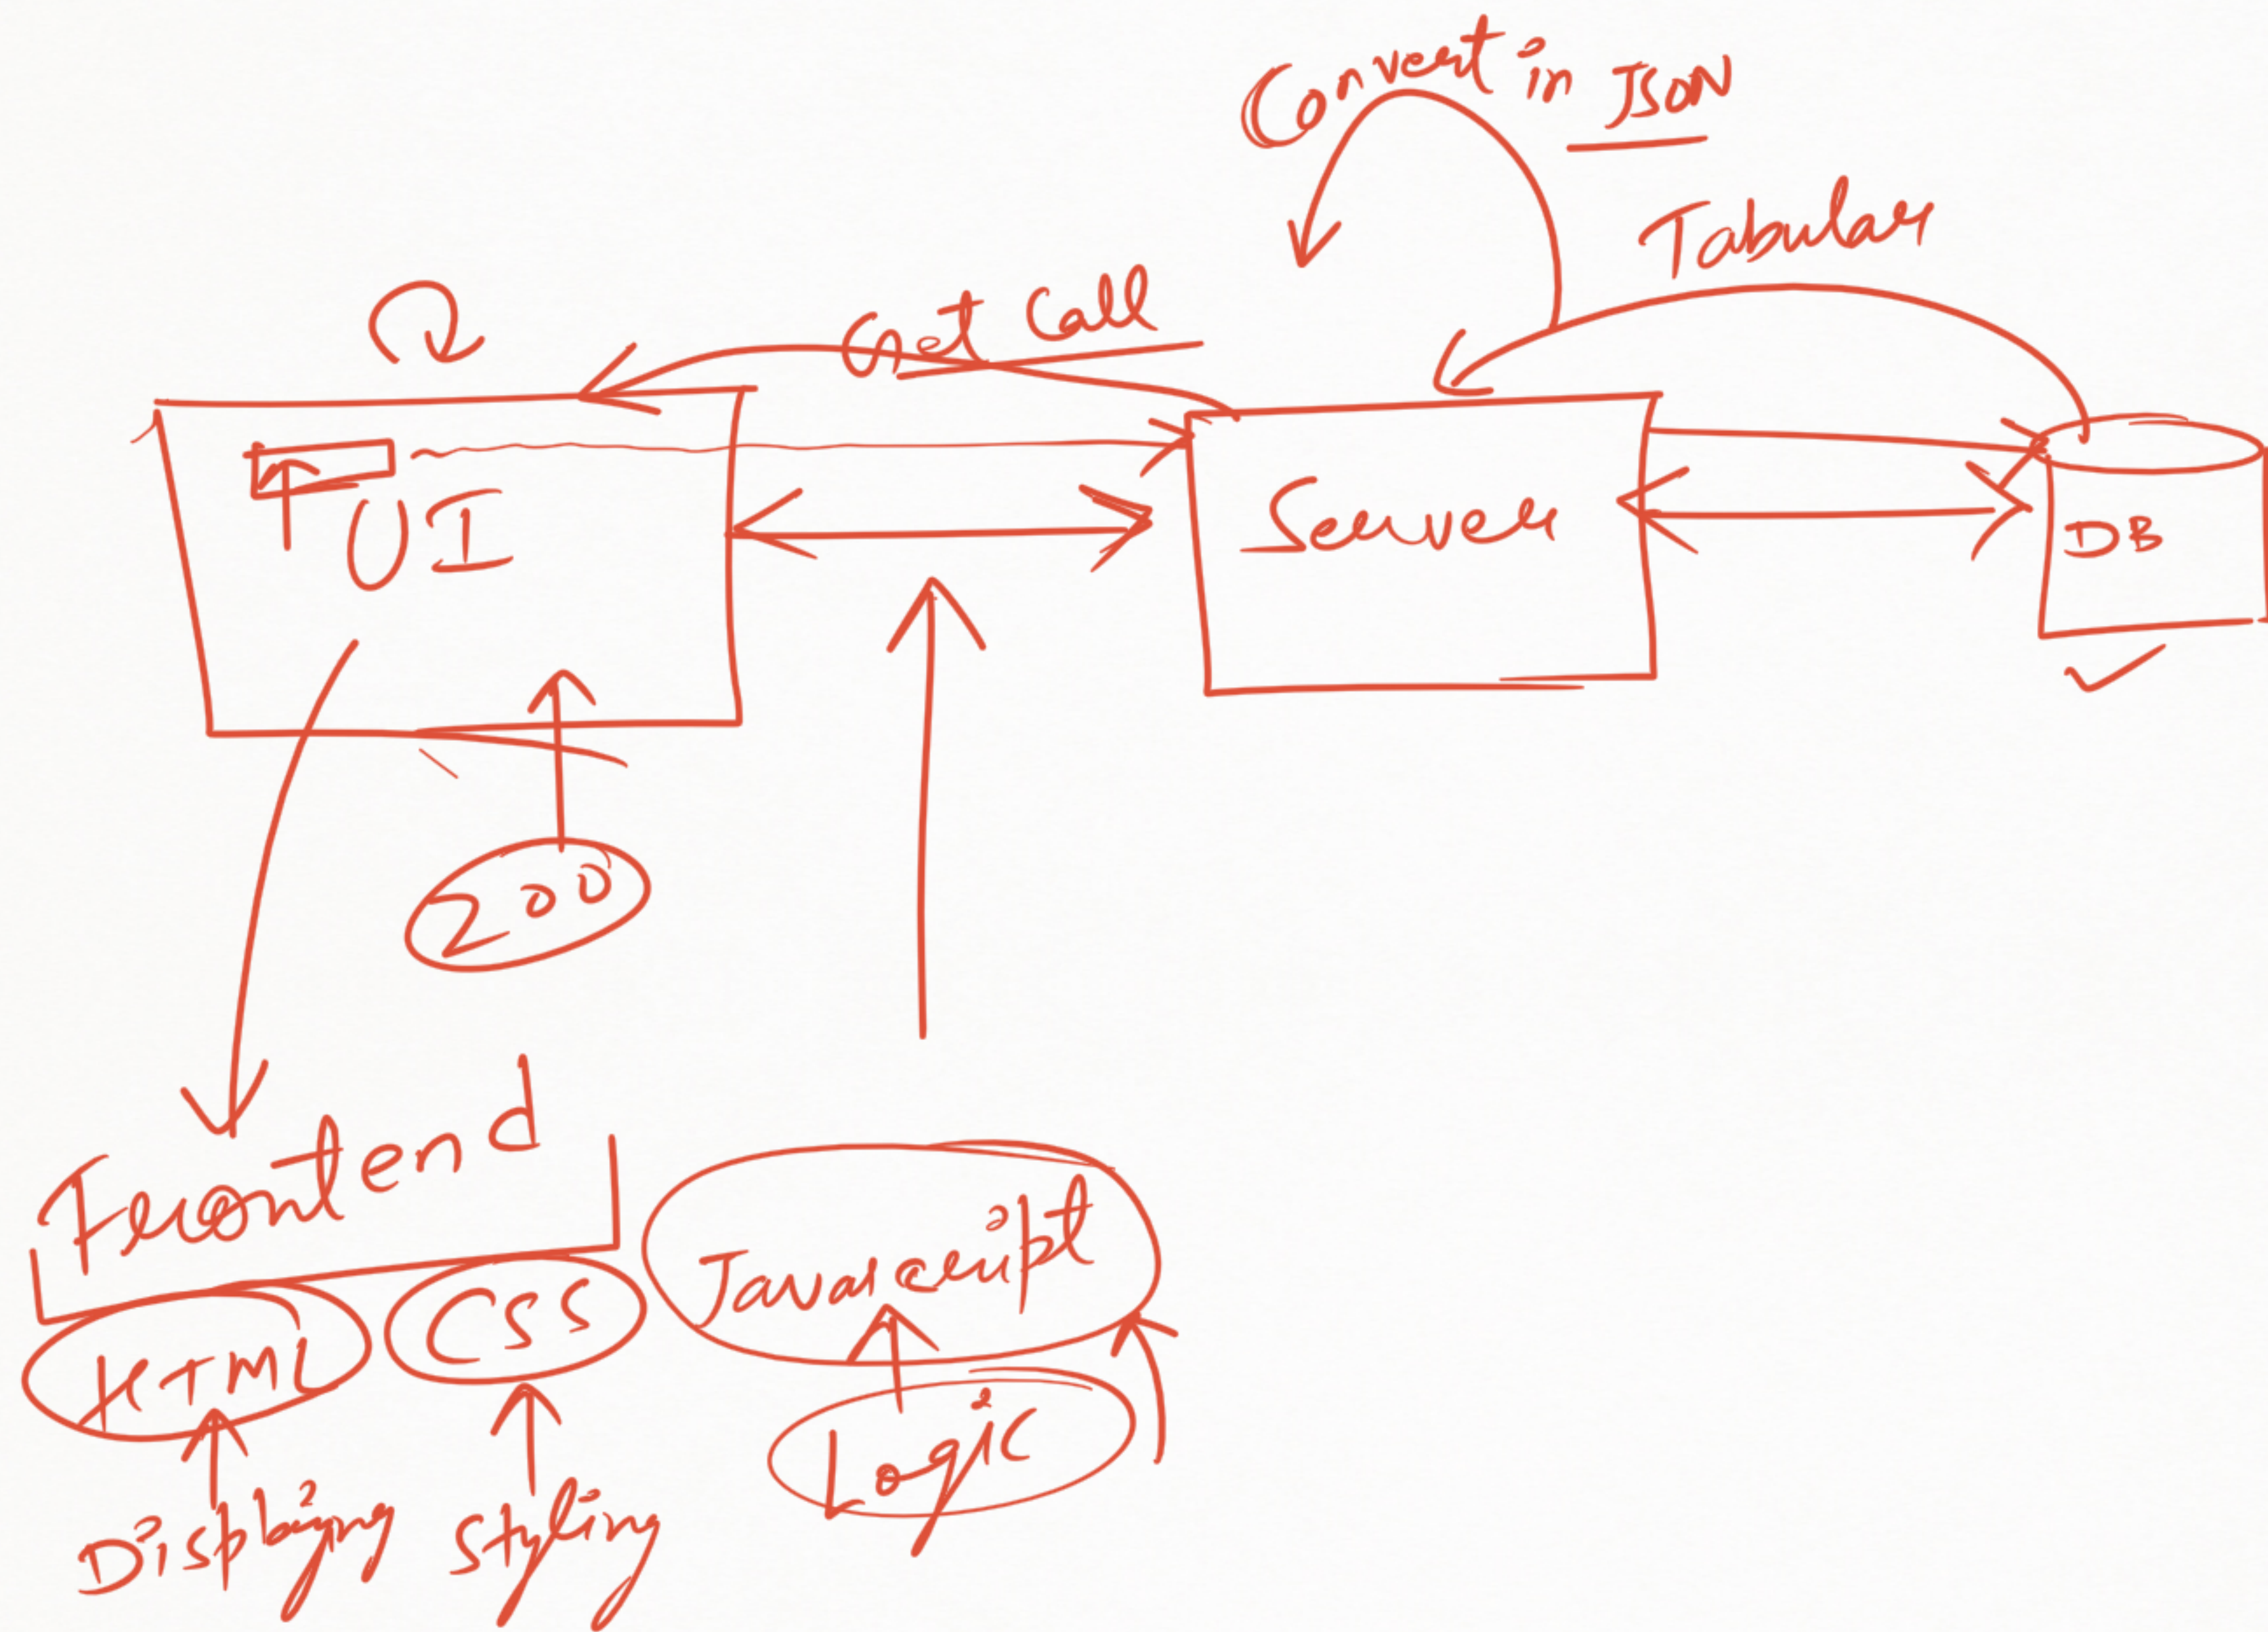 Convert in JSON
Tabular
Get Call
UI
Server
DB
200
Frontend
Javascript
HTML
CSS
Logic
Displaying
Styling